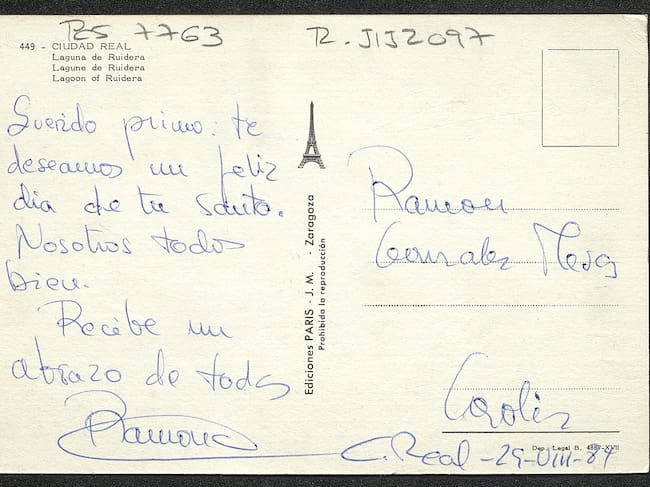 R5 7763
R. JIJ2097
449 - CIUDAD REAL
Laguna de Ruidera
Lagune de Ruidera
Lagoon of Ruidera
Querido primo: te
deseamos un feliz
dia de tu santo.
Nosotros todos
bien.
Recibe un
abrazo de todos
Ramona
Ediciones PARIS - J. M. - Zaragoza
Prohibida la reproducción
Ramon
Gonzalez
Dep. Legal B. 4887-XVII
C. Real - 29-VIII-84